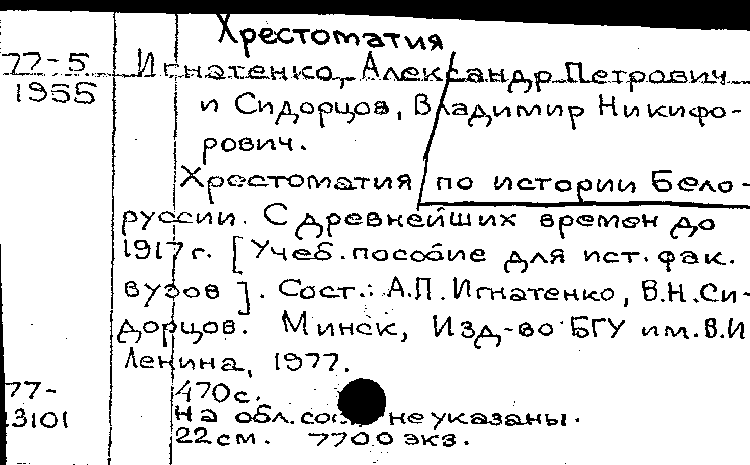 Хрестоматия
77-5 Игнатенко, Александр Петрович
1955 и Сидорцов, Владимир Никифо-
рович.
Хрестоматия по истории Бело-
руссии. С древнейших времен до
1917 г. [Учеб. пособие для ист. фак.
вузов]. Сост.: А.П. Игнатенко, В.Н. Си-
дорцов. Минск, Изд-во БГУ им. В.И
Ленина, 1977.
77- 470 с.
13101 На обл. не указаны.
22 см. 7700 экз.